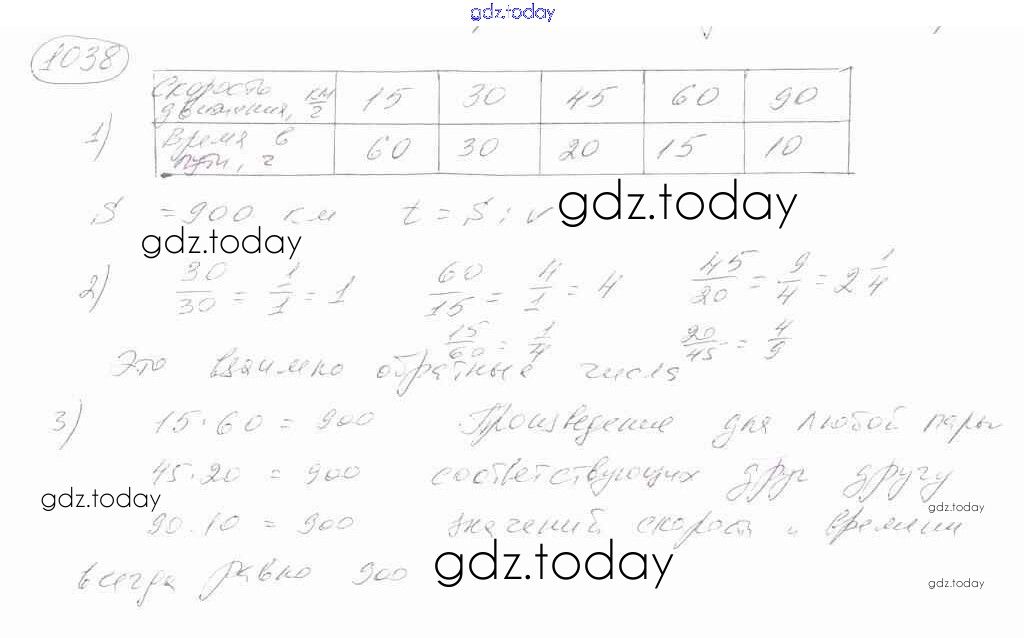 gdz.today
1038
1)
Скорость движения, км/г | 15 | 30 | 45 | 60 | 90
Время в пути, г | 60 | 30 | 20 | 15 | 10
S = 900 км t = S : v gdz.today
gdz.today
2) 30/30 = 1/1 = 1 60/15 = 4/1 = 4 45/20 = 9/4 = 2 1/4
15/60 = 1/4 20/45 = 4/9
Это взаимно обратные числа
3) 15·60 = 900 Произведение для любой пары
45·20 = 900 соответствующих друг другу
gdz.today gdz.today
90·10 = 900 значений скорости и времени
всегда равно 900 gdz.today gdz.today